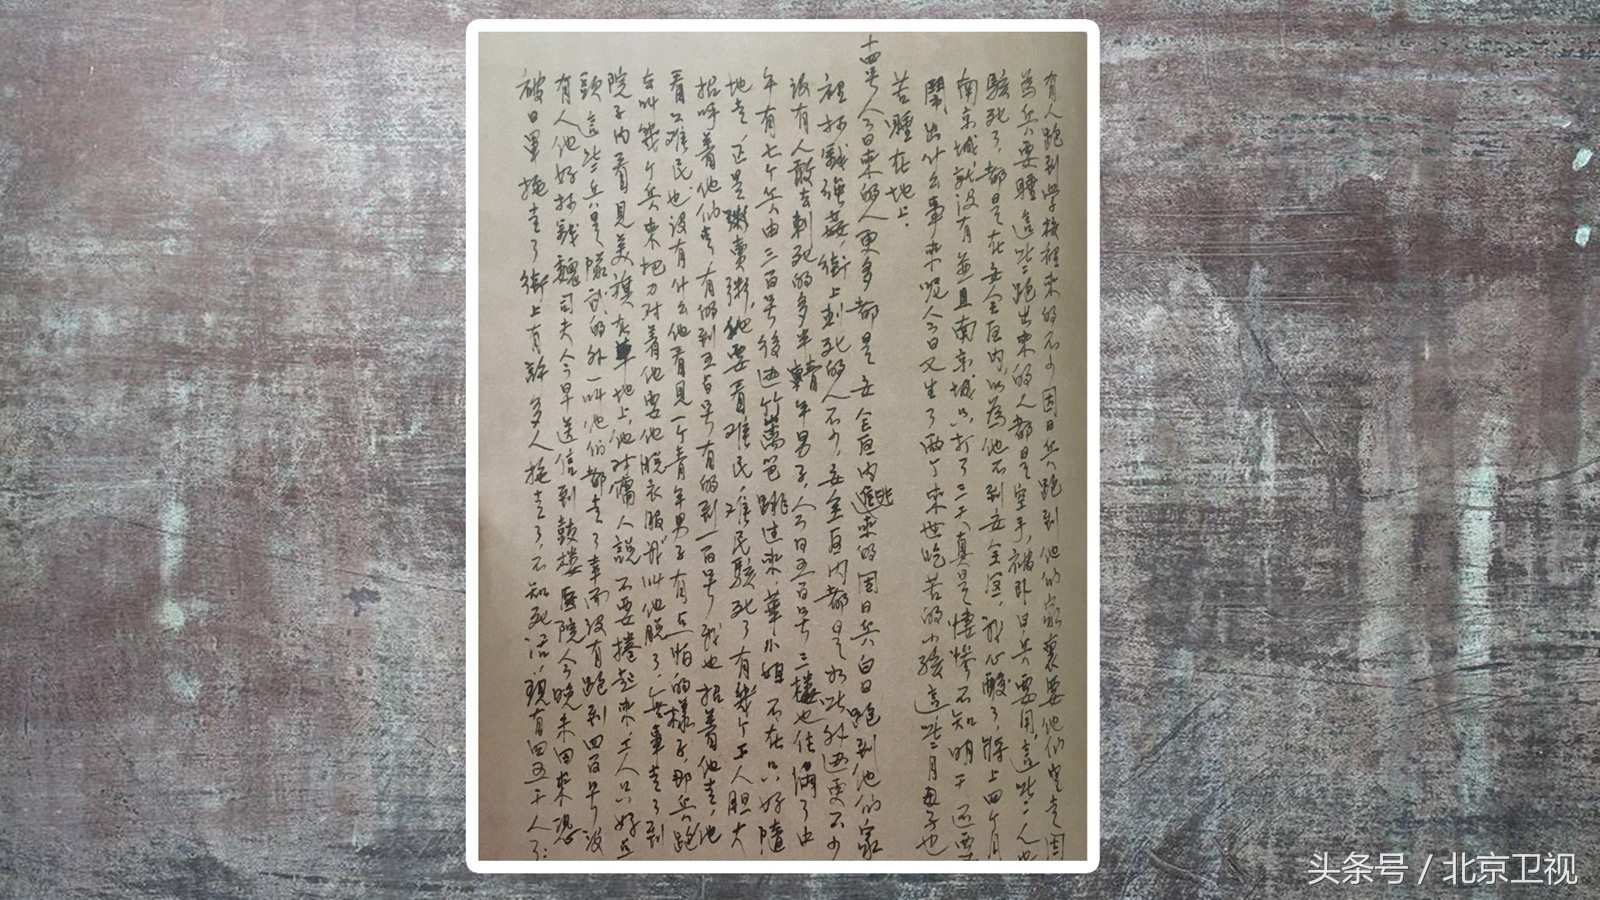 有人跑到学校裡来的不少因日兵跑到他们家裏要他们空走因
為兵要睡這些跑出来的人都是空手,被卧日兵要用,這些人也
駭死了,都是在安全区内,以為他不到安全区,我心酸了,將上四个月
南京城,就没有並且南京城只打了三天真是悽慘不知明天還要
鬧出什么事来呢人今日又生了两个来世吃苦的小孩這些月母子也
苦睡在地上。
十四号人今日来的人更多都是安全区内逃来的因日兵白日跑到他们家
裡抄戝强姦,街上刺死的人不少,安全区内都是如此外边更不少
没有人敢去刺死的多半青年男子,人今日五百号三楼也住满了中
午有七个兵由三百号後边竹篱笆跳过来,華小姐不在只好随
地走,还是粥賣粥,他要看难民难民駭死了有幾个工人胆大
招呼着他们走有的到五百号有的到一百号我也招着他走,他
看二难民也没有什么他看見一个青年男子有点怕的樣子那兵跑
去叫幾个兵来把刀对着他要他脱衣服就叫他脱了,無事走了到
院子内看見美旗在草地上,他对傭人說不要捲起来,工人只好点
頭這些兵是隊武的外一叫他们都走了幸而没有跑到四百号,没
有人他好抄戝魏司夫人今早送信到鼓楼医院今晚未回来恐
被日軍拖走了街上有許多人拖走了,不知死活,現有四五千人了:
头条号 / 北京卫视